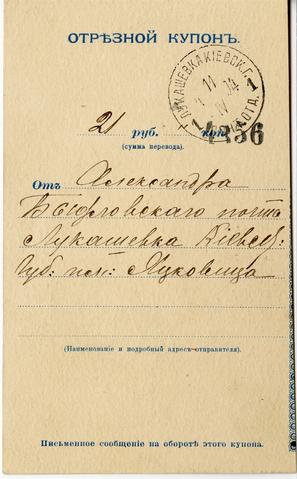 ОТРѢЗНОЙ КУПОНЪ.
ЛУКАШЕВКА КІЕВСК. Г.
11 IV 14
1256
21 руб. коп.
(сумма перевода).
Отъ Александра
почт.
Лукашевка Кіевск:
Губ:
(Наименованіе и подробный адресъ отправителя).
Письменное сообщеніе на оборотѣ этого купона.